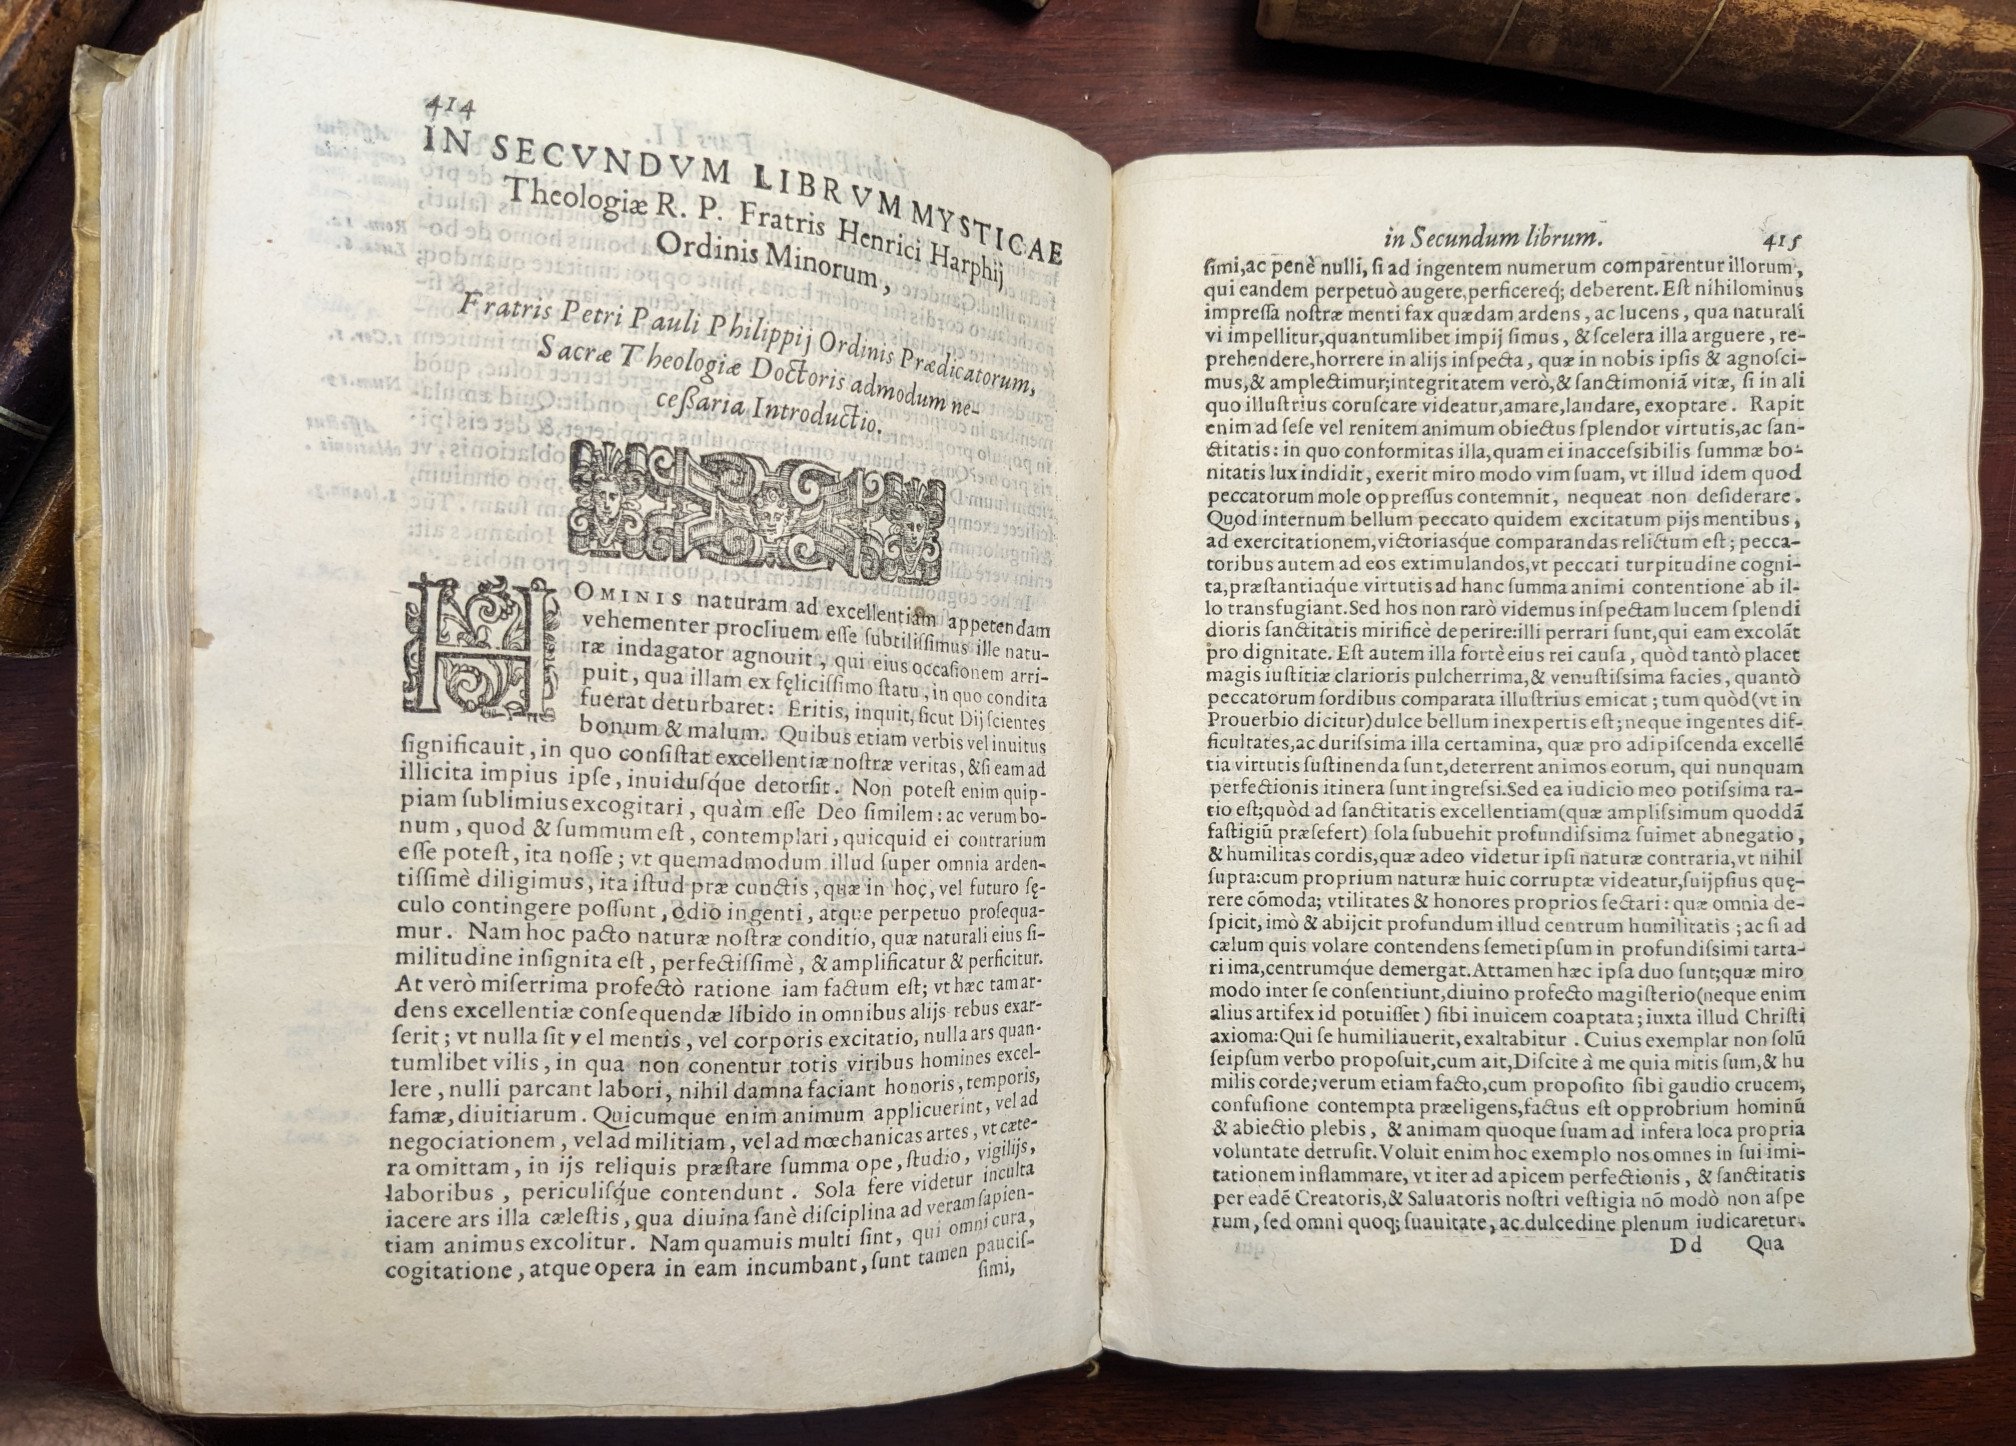 414
IN SECVNDVM LIBRVM MYSTICAE
Theologiæ R. P. Fratris Henrici Harphij
Ordinis Minorum,
Fratris Petri Pauli Philippij Ordinis Prædicatorum,
Sacræ Theologiæ Doctoris admodum ne-
ceßaria Introductio.
HOMINIS naturam ad excellentiam appetendam
vehementer procliuem esse subtilissimus ille natu-
ræ indagator agnouit, qui eius occasionem arri-
puit, qua illam ex fęlicissimo statu, in quo condita
fuerat deturbaret: Eritis, inquit, sicut Dij scientes
bonum & malum. Quibus etiam verbis vel inuitus
significauit, in quo consistat excellentiæ nostræ veritas, & si eam ad
illicita impius ipse, inuidusq́ue detorsit. Non potest enim quip-
piam sublimius excogitari, quàm esse Deo similem: ac verum bo-
num, quod & summum est, contemplari, quicquid ei contrarium
esse potest, ita nosse; vt quemadmodum illud super omnia arden-
tissimè diligimus, ita istud præ cunctis, quæ in hoc, vel futuro sę-
culo contingere possunt, odio ingenti, atque perpetuo prosequa-
mur. Nam hoc pacto naturæ nostræ conditio, quæ naturali eius si-
militudine insignita est, perfectissimè, & amplificatur & perficitur.
At verò miserrima profectò ratione iam factum est; vt hæc tam ar-
dens excellentiæ consequendæ libido in omnibus alijs rebus exar-
serit; vt nulla sit vel mentis, vel corporis excitatio, nulla ars quan-
tumlibet vilis, in qua non conentur totis viribus homines excel-
lere, nulli parcant labori, nihil damna faciant honoris, temporis,
famæ, diuitiarum. Quicumque enim animum applicuerint, vel ad
negociationem, vel ad militiam, vel ad mœchanicas artes, vt cæte-
ra omittam, in ijs reliquis præstare summa ope, studio, vigilijs,
laboribus, periculisq́ue contendunt. Sola fere videtur inculta
iacere ars illa cælestis, qua diuina sanè disciplina ad veram sapien-
tiam animus excolitur. Nam quamuis multi sint, qui omni cura,
cogitatione, atque opera in eam incumbant, sunt tamen paucis-
simi,
in Secundum librum. 415
simi, ac penè nulli, si ad ingentem numerum comparentur illorum,
qui eandem perpetuò augere, perficereq́; deberent. Est nihilominus
impressa nostræ menti fax quædam ardens, ac lucens, qua naturali
vi impellitur, quantumlibet impij simus, & scelera illa arguere, re-
prehendere, horrere in alijs inspecta, quæ in nobis ipsis & agnosci-
mus, & amplectimur; integritatem verò, & sanctimoniã vitæ, si in ali
quo illustrius coruscare videatur, amare, laudare, exoptare. Rapit
enim ad sese vel renitem animum obiectus splendor virtutis, ac san-
ctitatis: in quo conformitas illa, quam ei inaccessibilis summæ bo-
nitatis lux indidit, exerit miro modo vim suam, vt illud idem quod
peccatorum mole oppressus contemnit, nequeat non desiderare.
Quod internum bellum peccato quidem excitatum pijs mentibus,
ad exercitationem, victoriasq́ue comparandas relictum est; pecca-
toribus autem ad eos extimulandos, vt peccati turpitudine cogni-
ta, præstantiaq́ue virtutis ad hanc summa animi contentione ab il-
lo transfugiant. Sed hos non rarò videmus inspectam lucem splendi
dioris sanctitatis mirificè deperire: illi perrari sunt, qui eam excolãt
pro dignitate. Est autem illa fortè eius rei causa, quòd tantò placet
magis iustitiæ clarioris pulcherrima, & venustissima facies, quantò
peccatorum sordibus comparata illustrius emicat; tum quòd (vt in
Prouerbio dicitur) dulce bellum inexpertis est; neque ingentes dif-
ficultates, ac durissima illa certamina, quæ pro adipiscenda excellẽ
tia virtutis sustinenda sunt, deterrent animos eorum, qui nunquam
perfectionis itinera sunt ingressi. Sed ea iudicio meo potissima ra-
tio est; quòd ad sanctitatis excellentiam (quæ amplissimum quoddã
fastigiũ præsefert) sola subuehit profundissima suimet abnegatio,
& humilitas cordis, quæ adeo videtur ipsi naturæ contraria, vt nihil
supra: cum proprium naturæ huic corruptæ videatur, suijpsius quę-
rere cõmoda; vtilitates & honores proprios sectari: quæ omnia de-
spicit, imò & abijcit profundum illud centrum humilitatis; ac si ad
cælum quis volare contendens semetipsum in profundissimi tarta-
ri ima, centrumq́ue demergat. Attamen hæc ipsa duo sunt; quæ miro
modo inter se consentiunt, diuino profecto magisterio (neque enim
alius artifex id potuisset) sibi inuicem coaptata; iuxta illud Christi
axioma: Qui se humiliauerit, exaltabitur. Cuius exemplar non solũ
seipsum verbo proposuit, cum ait, Discite à me quia mitis sum, & hu
milis corde; verum etiam facto, cum proposito sibi gaudio crucem,
confusione contempta præeligens, factus est opprobrium hominũ
& abiectio plebis, & animam quoque suam ad infera loca propria
voluntate detrusit. Voluit enim hoc exemplo nos omnes in sui imi-
tationem inflammare, vt iter ad apicem perfectionis, & sanctitatis
per eadẽ Creatoris, & Saluatoris nostri vestigia nõ modò non aspe
rum, sed omni quoq; suauitate, ac dulcedine plenum iudicaretur.
Dd Qua